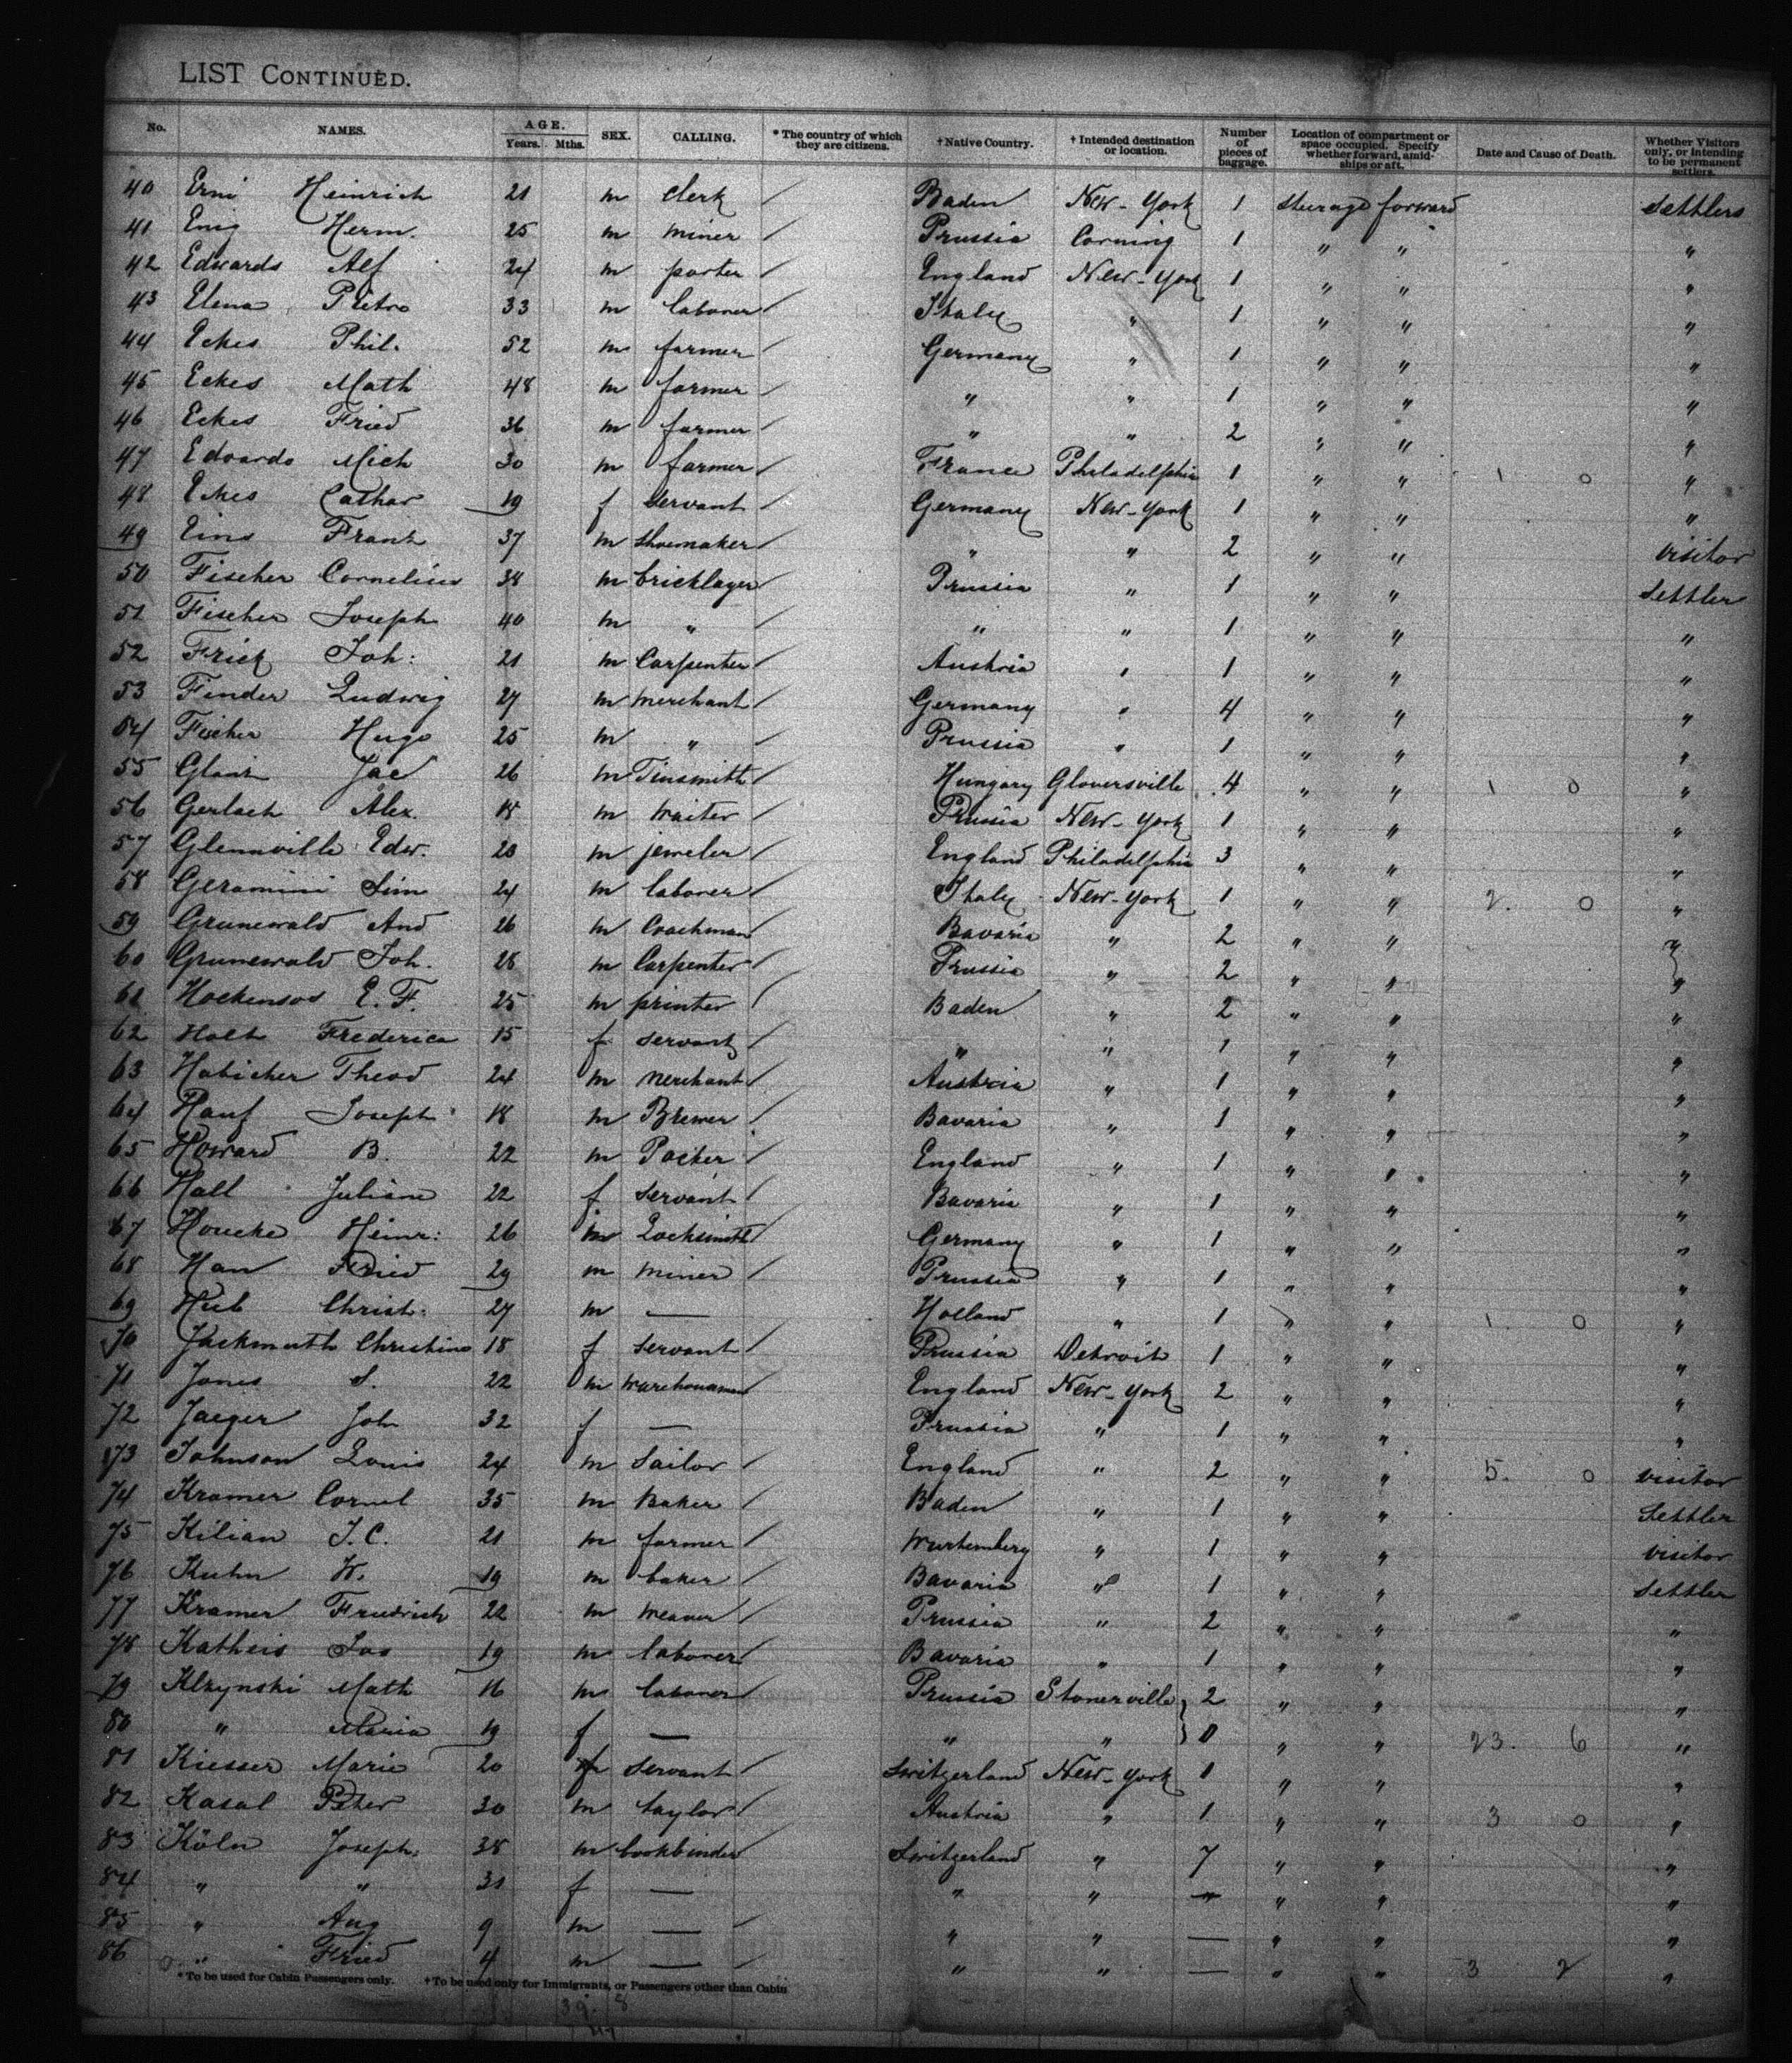 LIST CONTINUED.
No. NAMES. AGE. Years. Mths. SEX. CALLING. * The country of which they are citizens. † Native Country. † Intended destination or location. Number of pieces of baggage. Location of compartment or space occupied. Specify whether forward, amidships or aft. Date and Cause of Death. Whether Visitors only, or intending to be permanent settlers.
40 Erni Heinrich 21 m Clerk / Baden New-York 1 Steerage forward Settlers
41 Enig Herm. 25 m miner / Prussia Corning 1 " " "
42 Edwards Alf 24 m porter / England New-York 1 " " "
43 Elena Pietro 33 m laborer / Italy " 1 " " "
44 Eckes Phil. 52 m farmer / Germany " 1 " " "
45 Eckes Math 48 m farmer / " " 1 " " "
46 Eckes Fried 36 m farmer / " " 2 " " "
47 Edoardo Mich 30 m farmer / France Philadelphia 1 " " 1 0 "
48 Eckes Cathar 19 f Servant / Germany New-York 1 " " "
49 Eins Frank 37 m shoemaker / " " 2 " " visitor
50 Fischer Cornelius 38 m bricklayer / Prussia " 1 " " Settler
51 Fischer Joseph 40 m " / " " 1 " " "
52 Frick Joh: 21 m Carpenter / Austria " 1 " " "
53 Finder Ludwig 27 m merchant / Germany " 4 " " "
54 Fischer Hugo 25 m " / Prussia " 1 " " "
55 Jac 26 m Tinsmith / Hungary Gloversville 4 " " 1 0 "
56 Gerlach Alex. 18 m waiter / Prussia New-York 1 " " "
57 Glennville Edw. 20 m jeweler / England Philadelphia 3 " " "
58 Geramini Sim 24 m laborer / Italy New-York 1 " " 2. 0 "
59 Grunewald And 26 m Coachman Bavaria " 2 " " "
60 Grunewald Joh. 28 m Carpenter / Prussia " 2 " " "
61 Hockensos E. F. 25 m printer / Baden " 2 " " "
62 Holt Frederica 15 f servant / " " 1 " " "
63 Habicher Theod 24 m merchant / Austria " 1 " " "
64 Hauf Joseph 18 m Brewer / Bavaria " 1 " " "
65 Howard B. 22 m Packer / England " 1 " " "
66 Hall Juliane 22 f servant / Bavaria " 1 " " "
67 Houcke Heinr: 26 m Locksmith / Germany " 1 " " "
68 Han Fried 29 m miner / Prussia " 1 " " "
69 Hub Christ: 27 m — Holland " 1 " " 1. 0 "
70 Jackmuth Christine 18 f servant / Prussia Detroit 1 " " "
71 Jones S. 22 m warehouseman England New-York 2 " " "
72 Jaeger Joh 32 f — Prussia " 1 " " "
73 Johnson Louis 24 m Sailor / England " 2 " " 5. 0 visitor
74 Kramer Cornel 35 m Baker / Baden " 1 " " Settler
75 Kilian J. C. 21 m farmer / Wurtemberg " 1 " " visitor
76 Kuhn W. 19 m baker / Bavaria " 1 " " Settler
77 Kramer Friedrich 22 m weaver / Prussia " 2 " " "
78 Katheis Jos 19 m laborer / Bavaria " 1 " " "
79 Klzynski Math 16 m laborer / Prussia Stonerville 2 " " "
80 " Maria 19 f — " " 0 " " 23. 6 "
81 Kiesser Marie 20 f servant / Switzerland New-York 1 " " "
82 Kasal Peter 30 m taylor / Austria " 1 " " 3 0 "
83 Köln Joseph 38 m bookbinder Switzerland " 7 " " "
84 " " 31 f — " " — " " "
85 " Aug 9 m — / " " — " " "
86 " Fried 4 m — / " " — " " 3 2 "
* To be used for Cabin Passengers only. † To be used only for Immigrants, or Passengers other than Cabin
39. 8